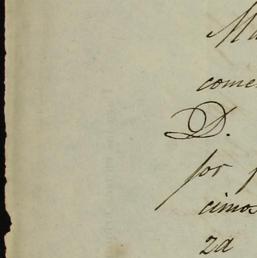 come
D.
por
cimos
za